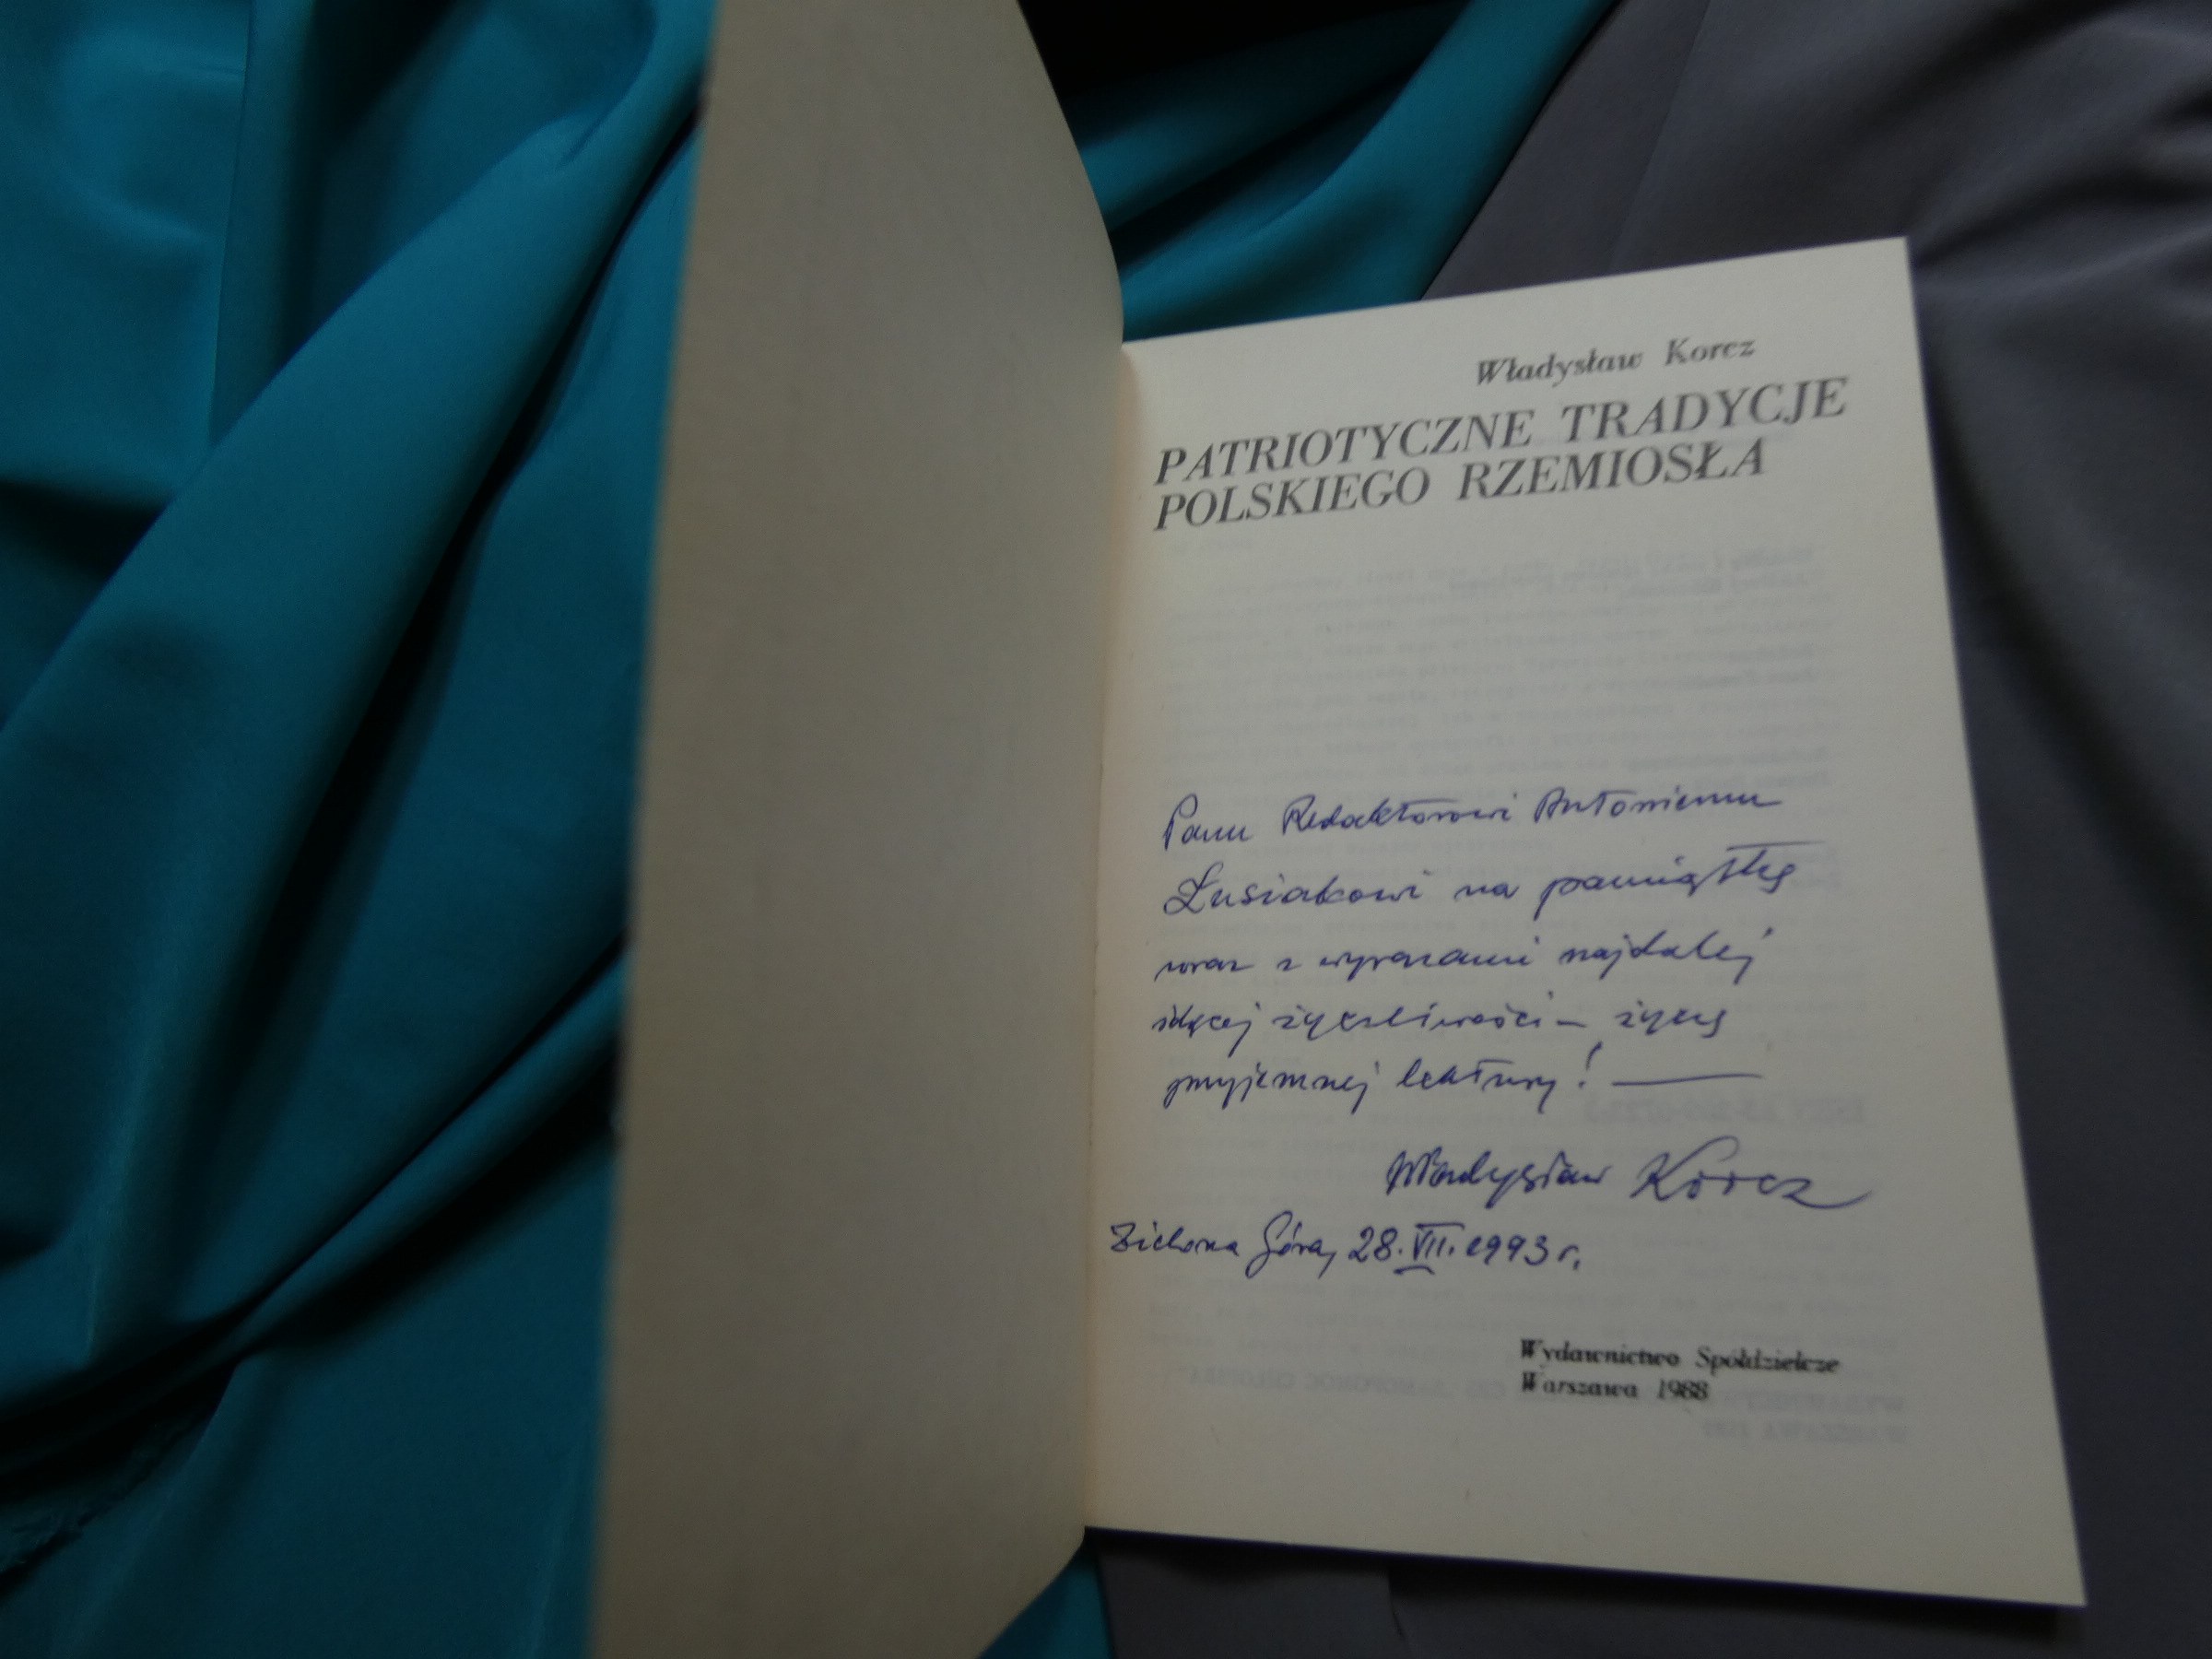 Władysław Korcz
PATRIOTYCZNE TRADYCJE
POLSKIEGO RZEMIOSŁA
Panu Redaktorowi Antoniemu
Łusiakowi na pamiątkę
wraz z wyrazami najdalej
idącej życzliwości – życzę
przyjemnej lektury! —
Władysław Korcz
Zielona Góra, 28.VII.1993 r.
Wydawnictwo Spółdzielcze
Warszawa 1988